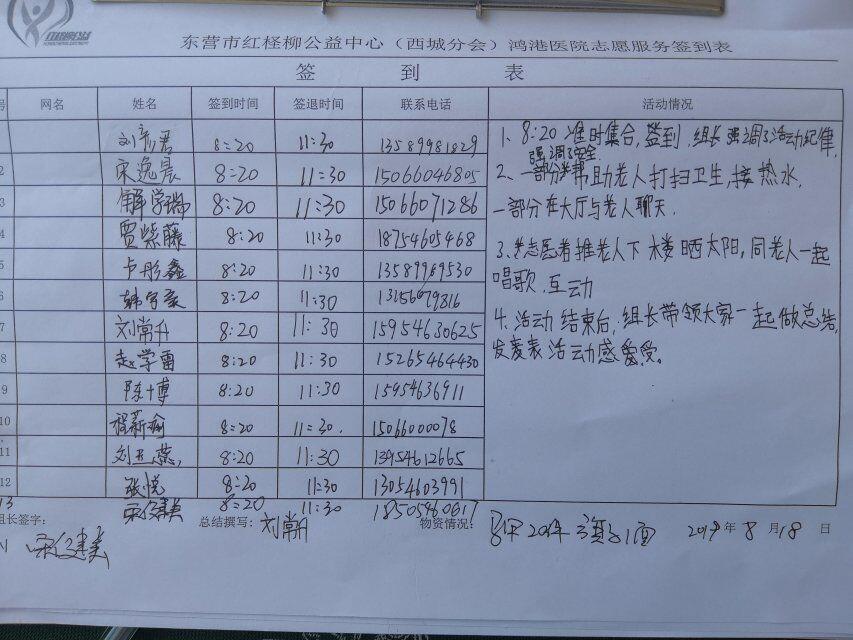 东营市红柽柳公益中心（西城分会）鸿港医院志愿服务签到表
签 到 表
号 网名 姓名 签到时间 签退时间 联系电话 活动情况
8:20 11:30 13589981829
2 宋逸晨 8:20 11:30 15066046805
3 解学瑞 8:20 11:30 15066071286
4 贾紫藤 8:20 11:30 18754605468
5 卢彤鑫 8:20 11:30 13589969530
6 韩宇豪 8:20 11:30
7 刘常升 8:20 11:30 15954630625
8 赵学雷 8:20 11:30 15265464430
9 陈博 8:20 11:30 15954636911
10 8:20 11:30. 15066000078
11 8:20 11:30 13954612665
12 张悦 8:20 11:30 13054603991
13 8:20 11:30 18505460617
1、8:20准时集合,签到,组长强调了活动纪律,
强调了安全
2、一部分帮助老人打扫卫生,接热水,
一部分在大厅与老人聊天.
3、志愿者推老人下楼晒太阳,同老人一起
唱歌,互动
4.活动结束后,组长带领大家一起做总结,
发表活动感受。
组长签字： 总结撰写：刘常升 物资情况： 马甲20件 旗子1面 2019年8月18日